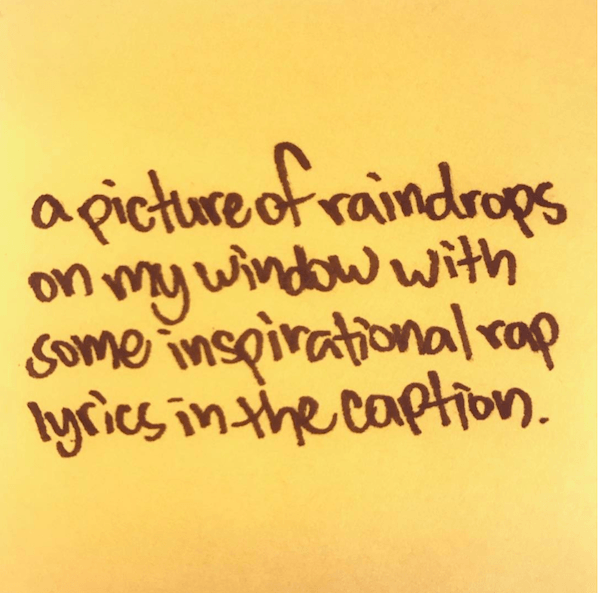 a picture of raindrops
on my window with
some inspirational rap
lyrics in the caption.